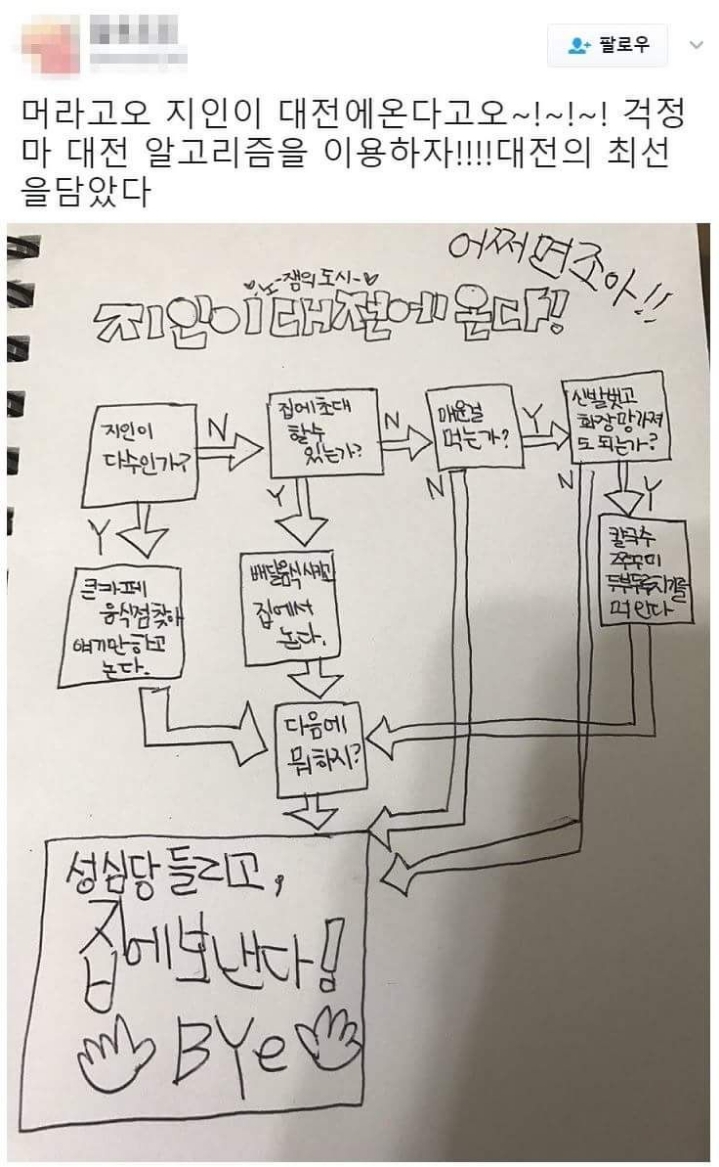 팔로우
머라고오 지인이 대전에온다고오~!~!~! 걱정
마 대전 알고리즘을 이용하자!!!!대전의 최선
을담았다
어쩌면조아!!
노-잼의도시-
지인이대전에온다!
지인이
다수인가?
N
Y
집에초대
할수
있는가?
N
Y
매운걸
먹는가?
Y
N
신발벗고
화장망가져
도 되는가?
N
Y
큰카페
음식점찾아
얘기만하고
논다.
배달음식시키고
집에서
논다.
칼국수
쭈꾸미
두부두루치기를
먹인다
다음에
뭐하지?
성심당 들리고,
집에보낸다!
BYe